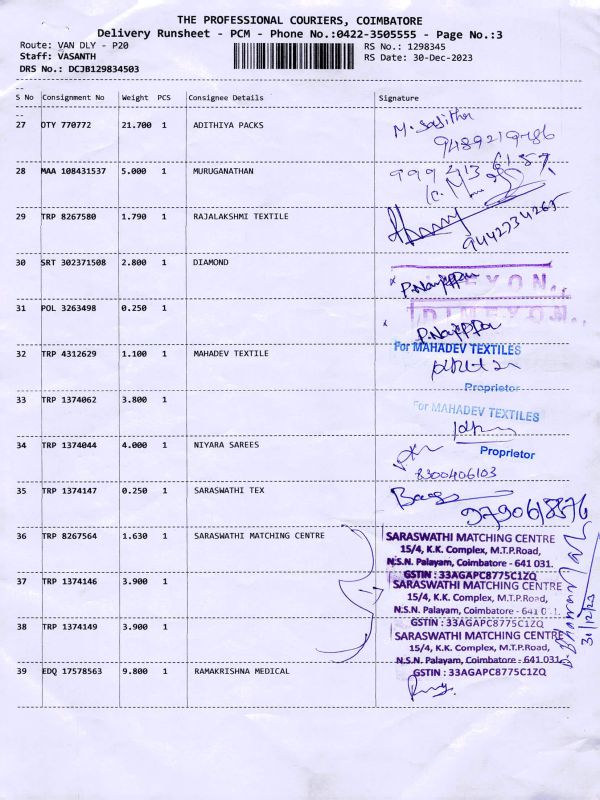 THE PROFESSIONAL COURIERS, COIMBATORE
Delivery Runsheet - PCM - Phone No.:0422-3505555 - Page No.:3
Route: VAN DLY - P20
RS No.: 1298345
Staff: VASANTH
RS Date: 30-Dec-2023
DRS No.: DCJB129834503
S No Consignment No Weight PCS Consignee Details Signature
27 OTY 770772 21.700 1 ADITHIYA PACKS
M. Sajitha
9489219486
28 MAA 108431537 5.000 1 MURUGANATHAN
29 TRP 8267580 1.790 1 RAJALAKSHMI TEXTILE
9442734265
30 SRT 302371508 2.800 1 DIAMOND
31 POL 3263498 0.250 1
32 TRP 4312629 1.100 1 MAHADEV TEXTILE
For MAHADEV TEXTILES
Proprietor
33 TRP 1374062 3.800 1
For MAHADEV TEXTILES
Proprietor
34 TRP 1374044 4.000 1 NIYARA SAREES
8300406103
35 TRP 1374147 0.250 1 SARASWATHI TEX
9790618376
36 TRP 8267564 1.630 1 SARASWATHI MATCHING CENTRE
SARASWATHI MATCHING CENTRE
15/4, K.K. Complex, M.T.P.Road,
N.S.N. Palayam, Coimbatore - 641 031.
GSTIN : 33AGAPC8775C1ZQ
37 TRP 1374146 3.900 1
SARASWATHI MATCHING CENTRE
15/4, K.K. Complex, M.T.P.Road,
N.S.N. Palayam, Coimbatore - 641 031.
GSTIN : 33AGAPC8775C1ZQ
38 TRP 1374149 3.900 1
SARASWATHI MATCHING CENTRE
15/4, K.K. Complex, M.T.P.Road,
N.S.N. Palayam, Coimbatore - 641 031.
GSTIN : 33AGAPC8775C1ZQ
31/12/23
39 EDQ 17578563 9.800 1 RAMAKRISHNA MEDICAL